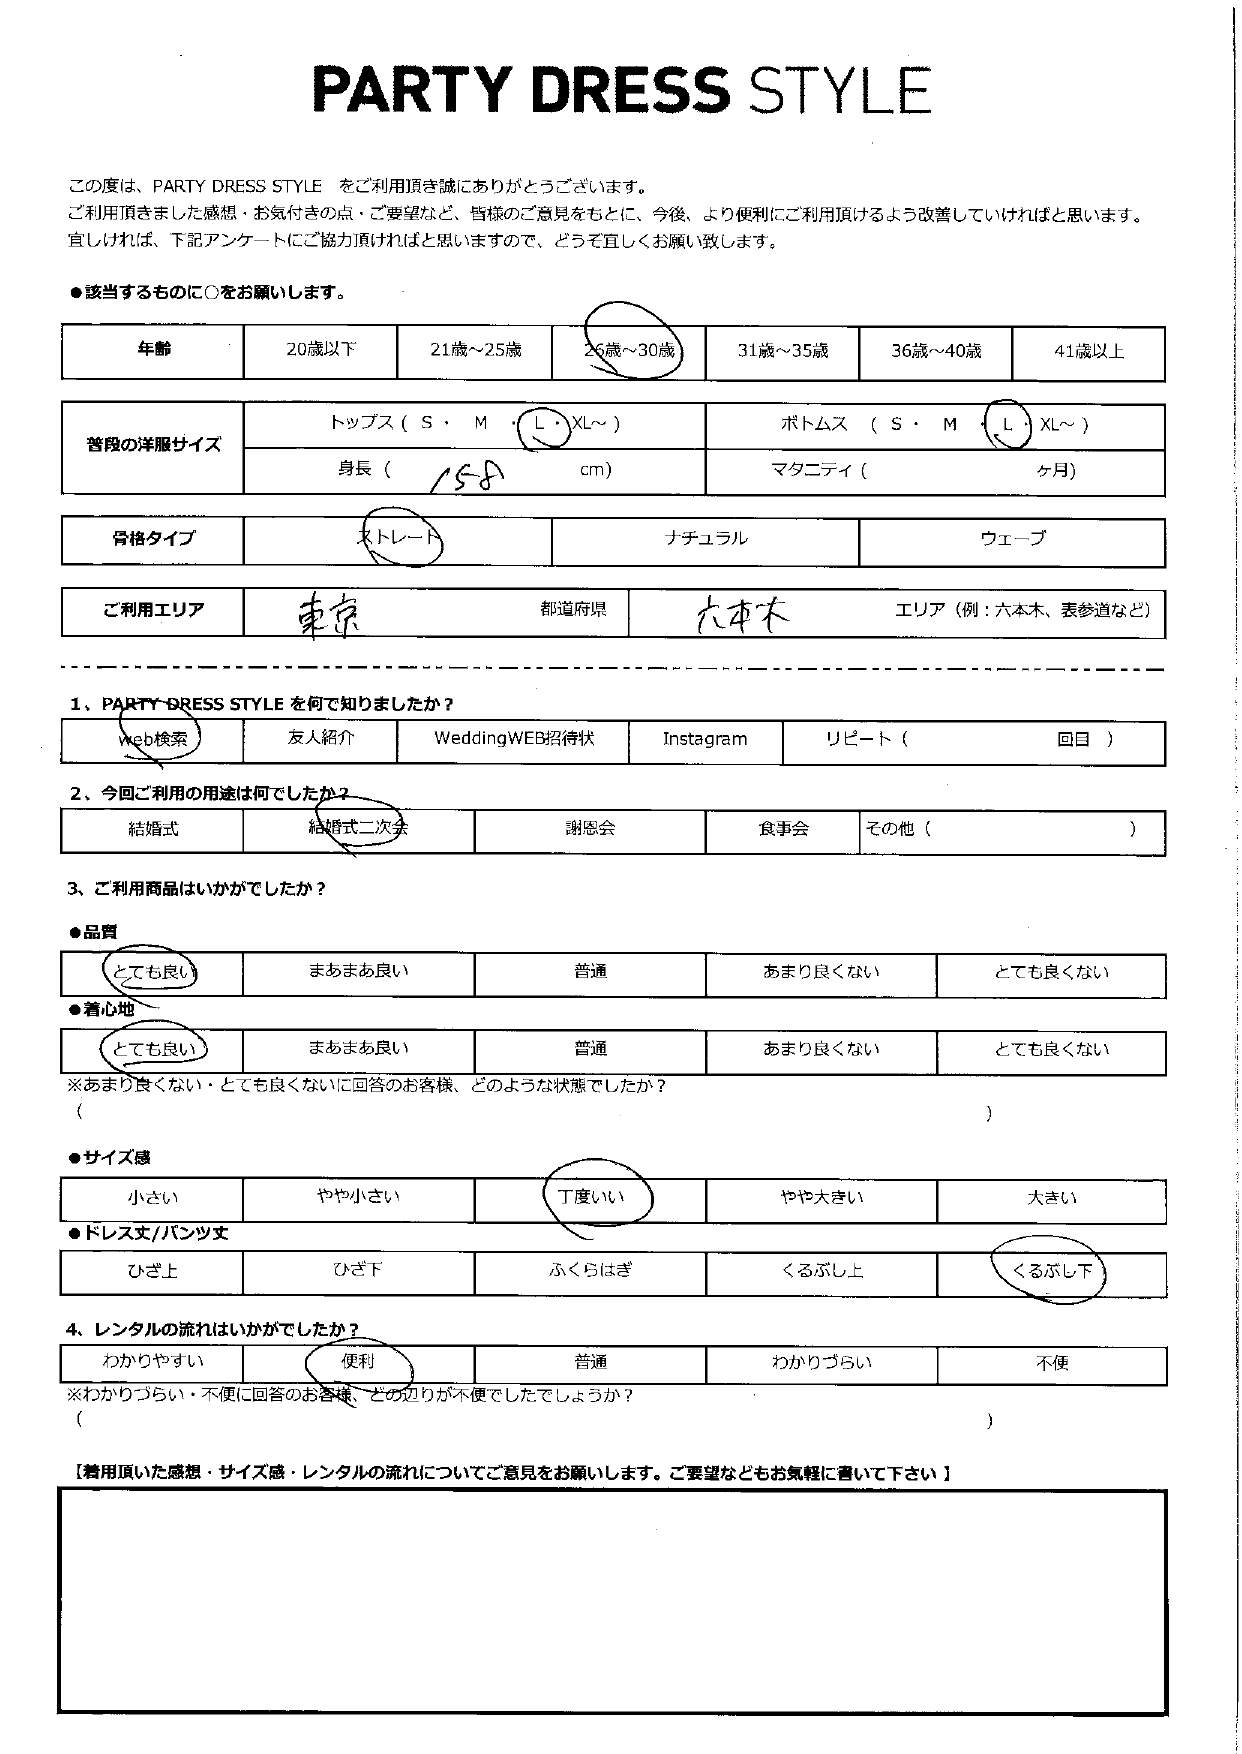 PARTY DRESS STYLE
この度は、PARTY DRESS STYLE をご利用頂き誠にありがとうございます。
ご利用頂きました感想・お気付きの点・ご要望など、皆様のご意見をもとに、今後、より便利にご利用頂けるよう改善していければと思います。
宜しければ、下記アンケートにご協力頂ければと思いますので、どうぞ宜しくお願い致します。
●該当するものに○をお願いします。
年齢 20歳以下 21歳～25歳 26歳～30歳 31歳～35歳 36歳～40歳 41歳以上
普段の洋服サイズ トップス ( S ・ M ・ L ・ XL～ ) ボトムス ( S ・ M ・ L ・ XL～ )
身長 ( 158 cm) マタニティ ( ヶ月)
骨格タイプ ストレート ナチュラル ウェーブ
ご利用エリア 東京 都道府県 六本木 エリア（例：六本木、表参道など）
1、PARTY DRESS STYLE を何で知りましたか？
web検索 友人紹介 WeddingWEB招待状 Instagram リピート ( 回目 )
2、今回ご利用の用途は何でしたか？
結婚式 結婚式二次会 謝恩会 食事会 その他 ( )
3、ご利用商品はいかがでしたか？
●品質
とても良い まあまあ良い 普通 あまり良くない とても良くない
●着心地
とても良い まあまあ良い 普通 あまり良くない とても良くない
※あまり良くない・とても良くないに回答のお客様、どのような状態でしたか？
( )
●サイズ感
小さい やや小さい 丁度いい やや大きい 大きい
●ドレス丈/パンツ丈
ひざ上 ひざ下 ふくらはぎ くるぶし上 くるぶし下
4、レンタルの流れはいかがでしたか？
わかりやすい 便利 普通 わかりづらい 不便
※わかりづらい・不便に回答のお客様、どの辺りが不便でしたでしょうか？
( )
【着用頂いた感想・サイズ感・レンタルの流れについてご意見をお願いします。ご要望などもお気軽に書いて下さい 】